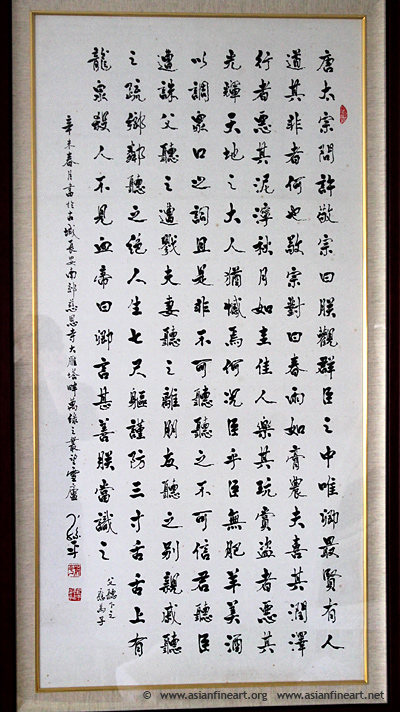 唐太宗問許敬宗曰朕觀群臣之中唯卿最賢有人
道其非者何也敬宗對曰春雨如膏農夫喜其潤澤
行者惡其泥濘秋月如圭佳人樂其玩賞盜者惡其
光輝天地之大人猶憾焉何況臣乎臣無肥羊美酒
以調眾口之詞且是非不可聽聽之不可信君聽臣
遭誅父聽之遭戮夫妻聽之離朋友聽之別親戚聽
之疏鄉鄰聽之絕人生七尺軀謹防三寸舌舌上有
龍泉殺人不見血帝曰卿言甚善朕當識之
辛未春月書於古城長安南郊慈恩寺大雁塔畔萬綠之叢望雲廬
父聽下之
應為子
© www.asianfineart.org www.asianfineart.net